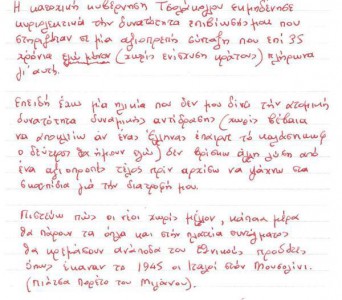 Η κατοχική κυβέρνηση Τσολάκογλου εκμηδένισε
κυριολεκτικά την δυνατότητα επιβίωσής μου που
στηριζόταν σε μία αξιοπρεπή σύνταξη που επί 35
χρόνια εγώ μόνον (χωρίς ενίσχυση κράτους) πλήρωνα
γι' αυτή.
Επειδή έχω μία ηλικία που δεν μου δίνει την ατομική
δυνατότητα δυναμικής αντίδρασης (χωρίς βέβαια
να αποκλείω αν ένας Έλληνας έπαιρνε το καλάσνικωφ
ο δεύτερος θα ήμουν εγώ) δεν βρίσκω άλλη λύση από
ένα αξιοπρεπές τέλος πριν αρχίσω να ψάχνω στα
σκουπίδια για την διατροφή μου.
Πιστεύω πως οι νέοι χωρίς μέλλον, κάποια μέρα
θα πάρουν τα όπλα και στην πλατεία συντάγματος
θα κρεμάσουν ανάποδα τους εθνικούς προδότες
όπως έκαναν το 1945 οι Ιταλοί στον Μουσολίνι
(πιάτσα Λορέτο του Μιλάνου).